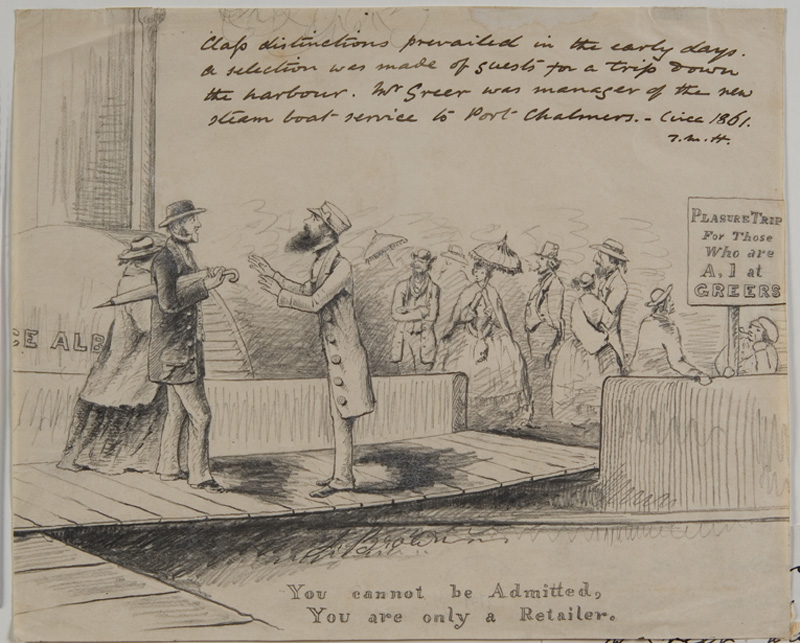 Class distinctions prevailed in the early days.
A selection was made of guests for a trip down
the harbour. Mr Greer was manager of the new
steam boat service to Port Chalmers. - Circa 1861.
T.M.H.
PLEASURE TRIP
For Those
Who are
A, 1 at
GREERS
CE ALB
You cannot be Admitted,
You are only a Retailer.